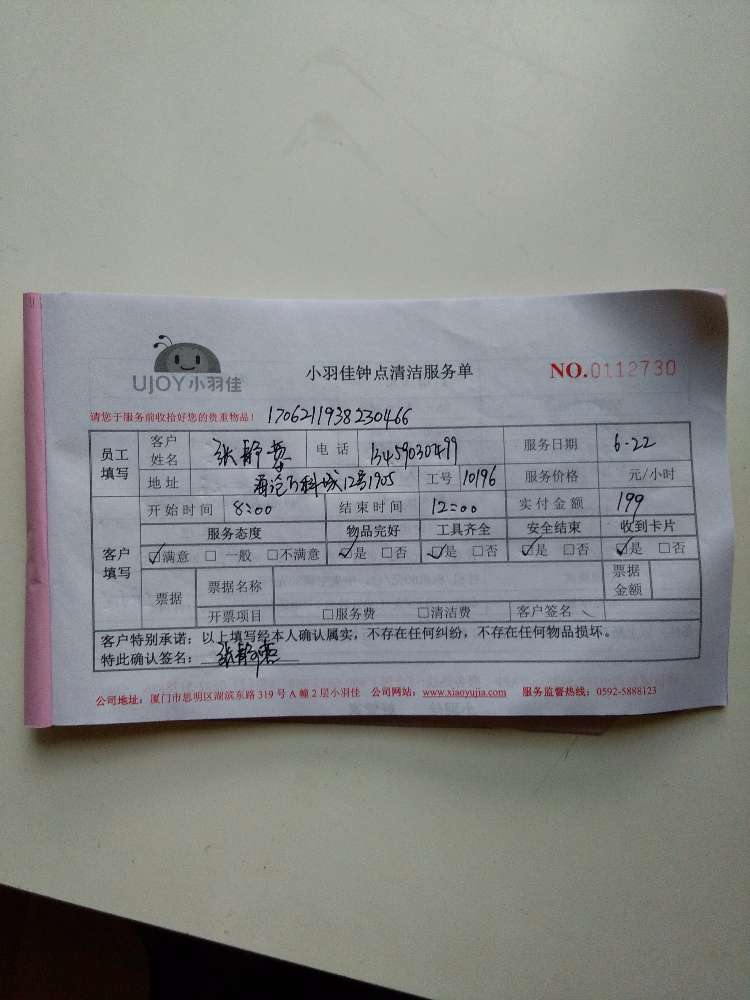 UJOY小羽佳
小羽佳钟点清洁服务单 NO.0112730
请您于服务前收拾好您的贵重物品! 1706211938230466
员工填写 客户姓名 张静 电话 13459030499 服务日期 6.22
地址 海沧万科城12号1905 工号 10196 服务价格 元/小时
客户填写 开始时间 8:00 结束时间 12:00 实付金额 199
服务态度 物品完好 工具齐全 安全结束 收到卡片
☑满意 □ 一般 □不满意 ☑是 □否 ☑是 □否 ☑是 □否 ☑是 □否
票据 票据名称 票据金额
开票项目 □服务费 □清洁费 客户签名
客户特别承诺：以上填写经本人确认属实，不存在任何纠纷，不存在任何物品损坏。
特此确认签名： 张静
公司地址：厦门市思明区湖滨东路 319 号 A 幢 2 层小羽佳 公司网站：www.xiaoyujia.com 服务监督热线：0592-5888123